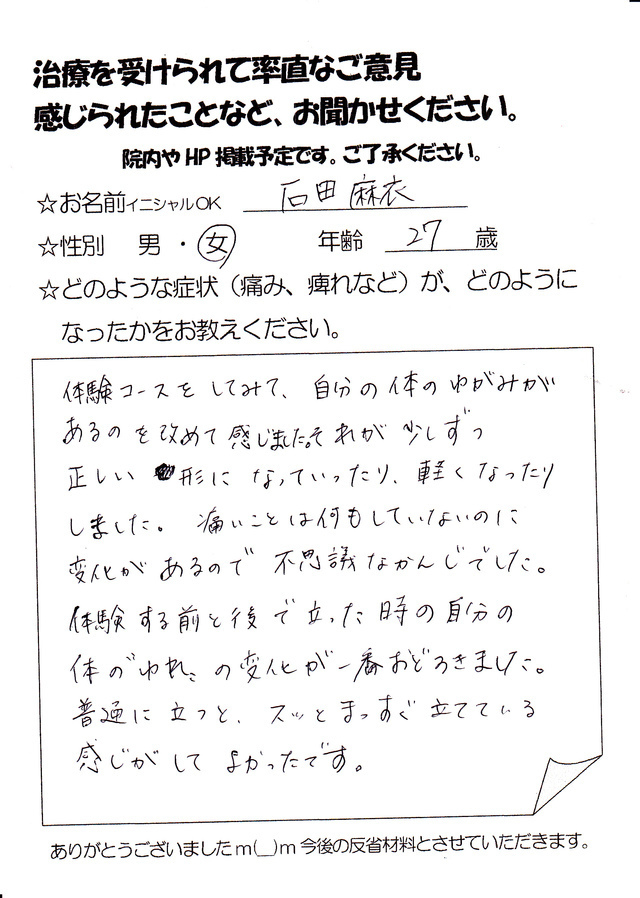 治療を受けられて率直なご意見
感じられたことなど、お聞かせください。
院内やHP掲載予定です。ご了承ください。
☆お名前イニシャルOK 石田麻衣
☆性別 男・女 年齢 27 歳
☆どのような症状（痛み、痺れなど）が、どのように
なったかをお教えください。
体験コースをしてみて、自分の体のゆがみが
あるのを改めて感じました。それが少しずつ
正しい形になっていったり、軽くなったり
しました。痛いことは何もしていないのに
変化があるので不思議なかんじでした。
体験する前と後で立った時の自分の
体の"ゆれ"の変化が一番おどろきました。
普通に立つと、スッとまっすぐ立てている
感じがしてよかったです。
ありがとうございましたm(__)m今後の反省材料とさせていただきます。